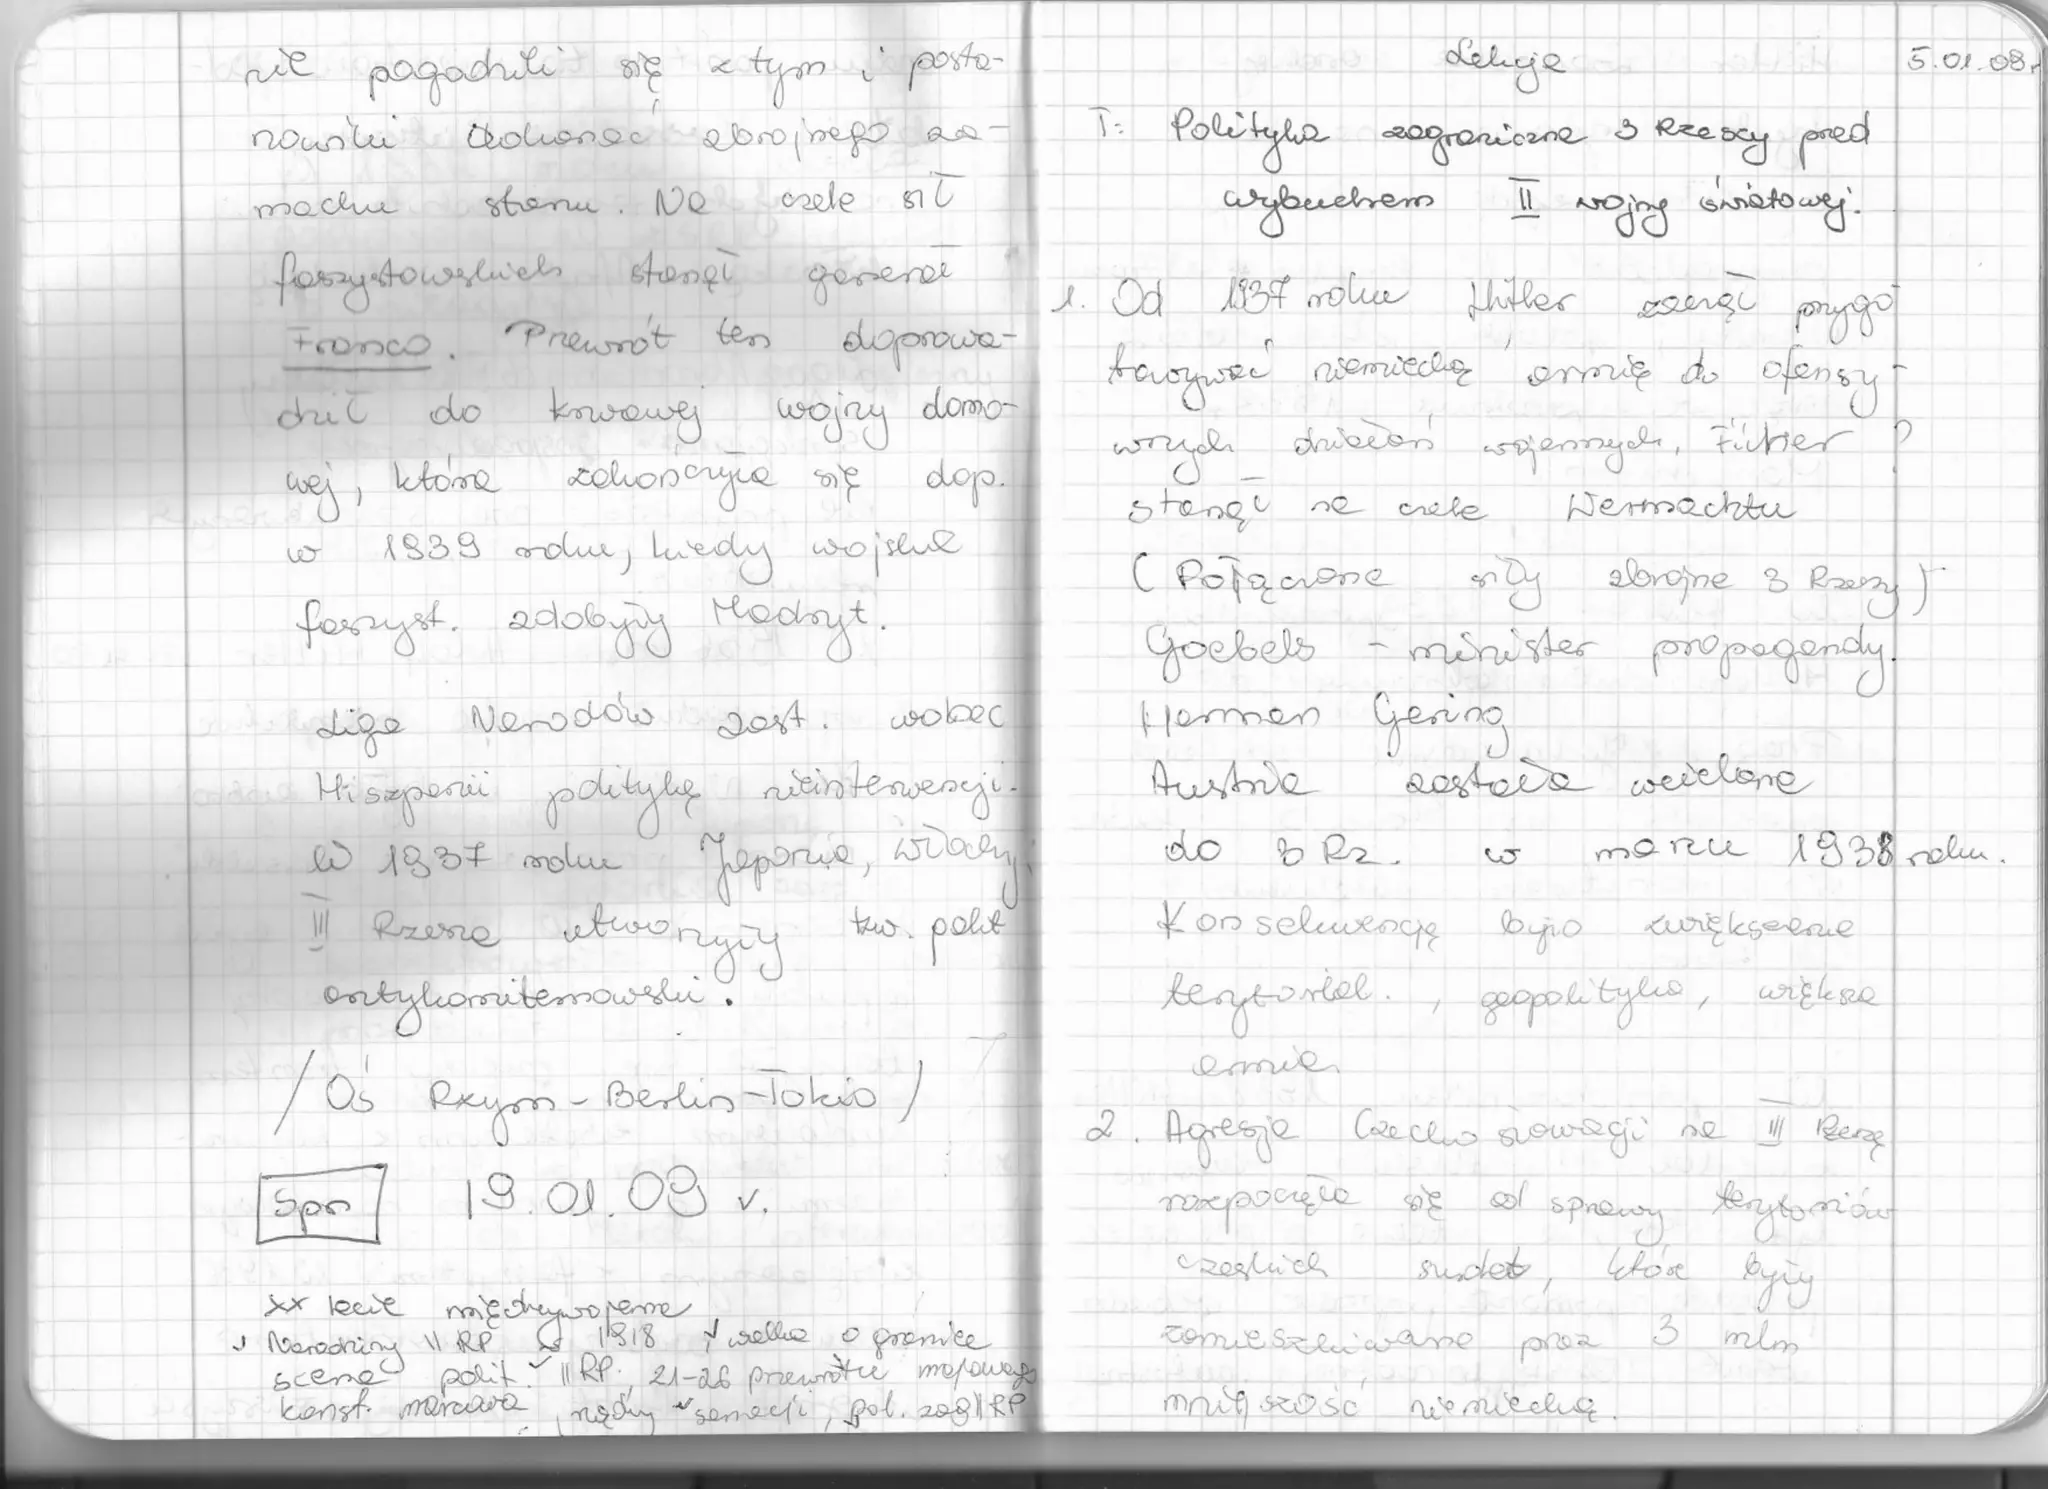 nie pogodzili się z tym i posta-
nowili dokonać zbrojnego za-
machu stanu. Na czele sił
faszystowskich stanął generał
Franco. Przewrót ten doprowa-
dził do krwawej wojny domo-
wej, która zakończyła się dop.
w 1939 roku, kiedy wojska
faszyst. zdobyły Madryt.
Liga Narodów zast. wobec
Hiszpanii politykę nieinterwencji.
W 1937 roku Japonia, Włochy,
III Rzesza utworzyły tzw. pakt
antykominternowski.
/ Oś Rzym-Berlin-Tokio /
Spr 19.01.09 r.
XX lecie międzywojenne
Narodziny II RP 1918 walka o granice
scena polit. II RP, 21-26 przewrotu majowego
konst. marcowa, rządy sanacji, pol. zag II RP
Lekcja 5.01.09r
T: Polityka zagraniczna 3 Rzeszy pred
wybuchem II wojny światowej.
1. Od 1937 roku Hitler zaczął przygo
towywać niemiecką armię do ofensy-
wnych działań wojennych. Fürer ?
stanął na czele Wermachtu
(Połączone siły zbrojne 3 Rzeszy)
Goebels - minister propagandy.
Herman Gering
Austria została wcielona
do 3 Rz. w marcu 1938 roku.
Konsekwencją było zwiększenie
terytorial., geopolityka, większa
armia
2. Agresja Czechosłowacji na III Rzeszę
rozpoczęła się od sprawy terytoriów
czeskich sudet, które były
zamieszkiwane przez 3 mln
mniejszość niemiecką.